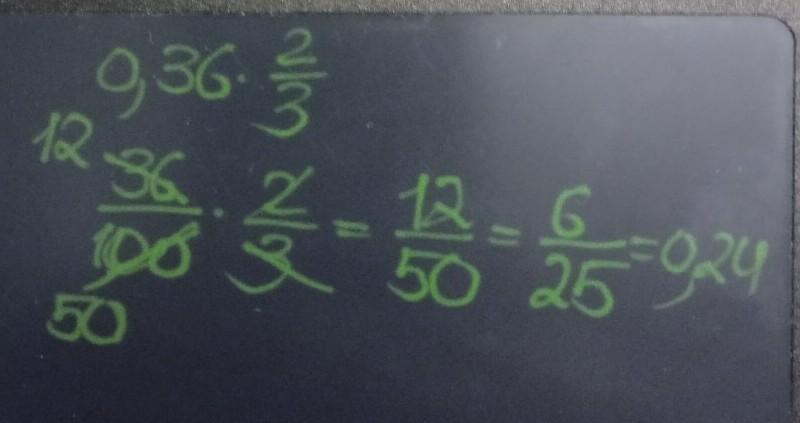 0,36 · 2/3
12 36/100 · 2/3 = 12/50 = 6/25 = 0,24
50